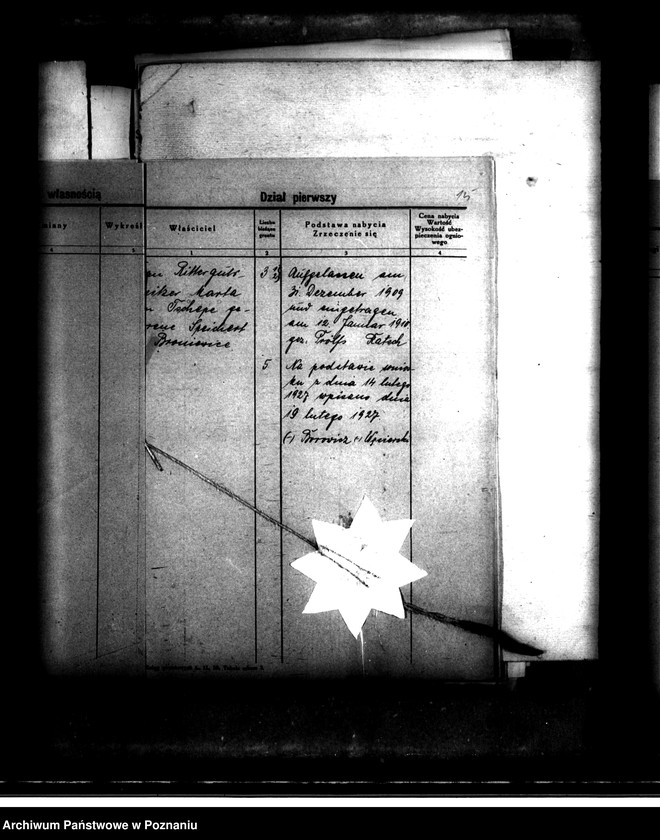 własnością
Dział pierwszy
15
Wykreśl
Właściciel
Liczba bieżąca gruntu
Podstawa nabycia
Zrzeczenie się
Cena nabycia
Wartość
Wysokość ubez-
pieczenia ognio-
wego
1
2
3
4
Ritterguts
Marta
Tschepe ge-
Speichert
Broniewice
3
Aufgelassen am
31. Dezember 1909
und eingetragen
am 12. Januar 1910
gez. Katsch
5
Na podstawie wnios-
ku z dnia 14 lutego
1927 wpisano dnia
19 lutego 1927
(-) Borowicz (-)
Archiwum Państwowe w Poznaniu